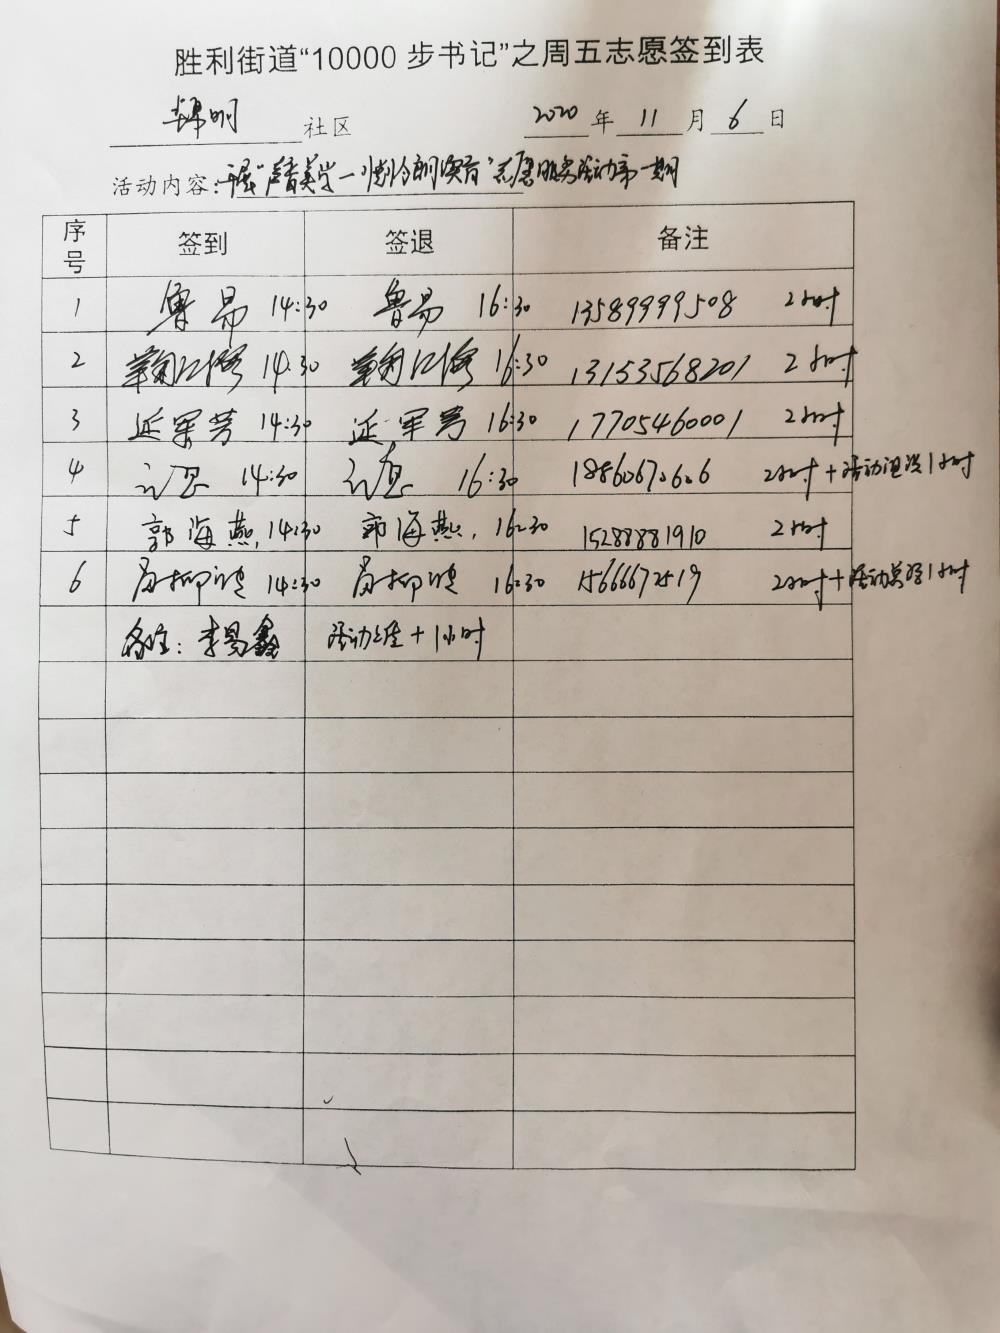 胜利街道“10000 步书记”之周五志愿签到表
锦明 社区 2020 年 11 月 6 日
活动内容：开展“声音美学—情冷朗演音”志愿服务活动第一期
序号 签到 签退 备注
1 鲁易 14:30 鲁易 16:30 13589999508 2小时
2 14:30 16:30 13153568201 2小时
3 延军芳 14:30 延军芳 16:30 17705460001 2小时
4 14:30 16:30 18860672606 2小时+活动组织1小时
5 郭海燕 14:30 郭海燕 16:30 15288881910 2小时
6 14:30 16:30 15666672519 2小时+活动总结1小时
备注：李昺鑫 活动 +1小时